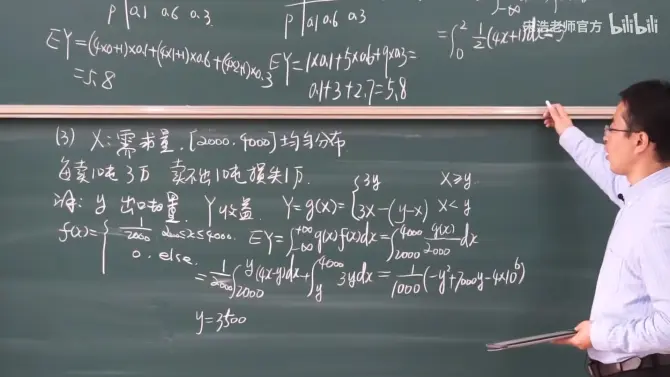 P | 0.1 0.6 0.3
P | 0.1 0.6 0.3.
EY=(4×0+1)×0.1+(4×1+1)×0.6+(4×2+1)×0.3
=5.8
EY=1×0.1+5×0.6+9×0.3=
0.1+3+2.7=5.8
=∫₀² 1/2(4x+1)dx=5
宋浩老师官方 bilibili
(3) X:需求量,[2000,4000]上均匀分布
每卖1吨3万 卖不出1吨损失1万.
解: y 出口量, Y收益. Y=g(x)={3y X≥y
3X-(y-X) X<y
f(x)={1/2000 2000≤x≤4000.
0. else.
EY=∫₋∞⁺∞g(x)f(x)dx=∫₂₀₀₀⁴⁰⁰⁰ g(x)/2000 dx
=1/2000∫₂₀₀₀^y(4x-y)dx+∫_y⁴⁰⁰⁰3ydx=1/1000(-y²+7000y-4×10⁶)
y=3500